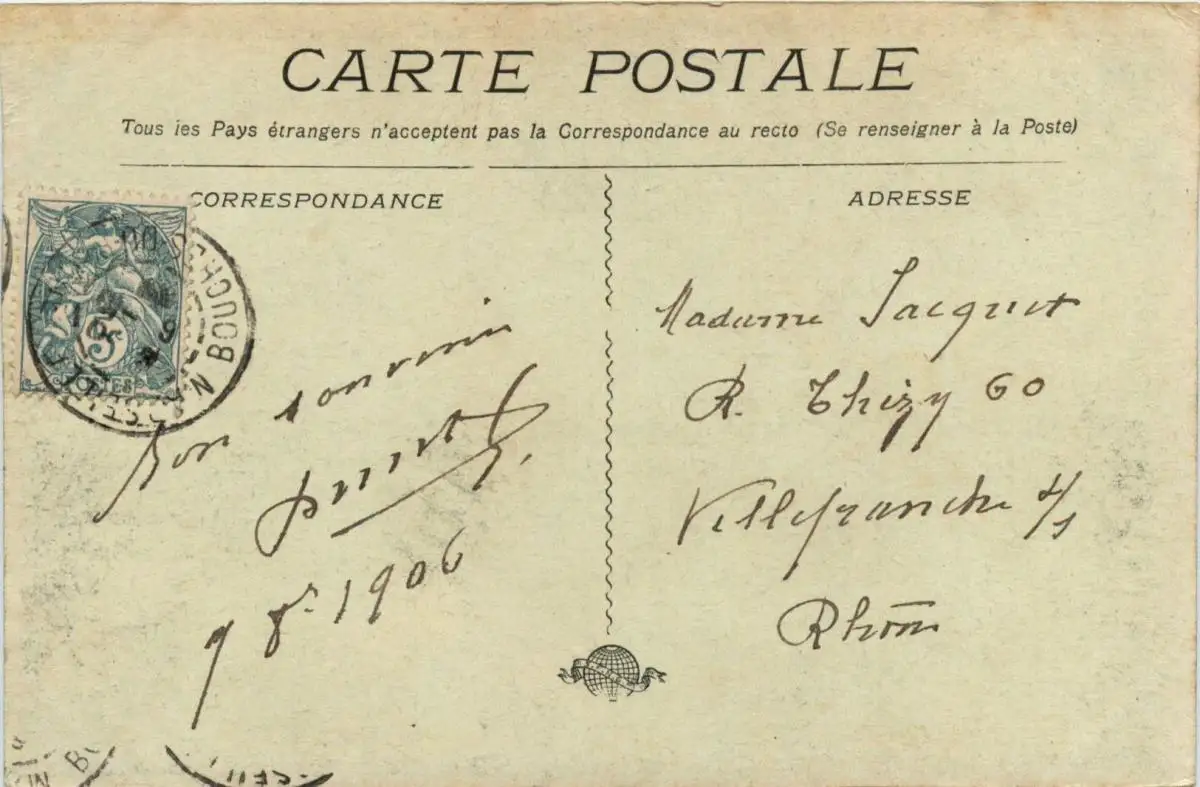 CARTE POSTALE
Tous les Pays étrangers n'acceptent pas la Correspondance au recto (Se renseigner à la Poste)
CORRESPONDANCE
ADRESSE
5c
POSTES
BOUCHES DU
Bon souvenir
9 8r 1906
Madame Jacquet
R. Thizy 60
Villefranche s/s
Rhône